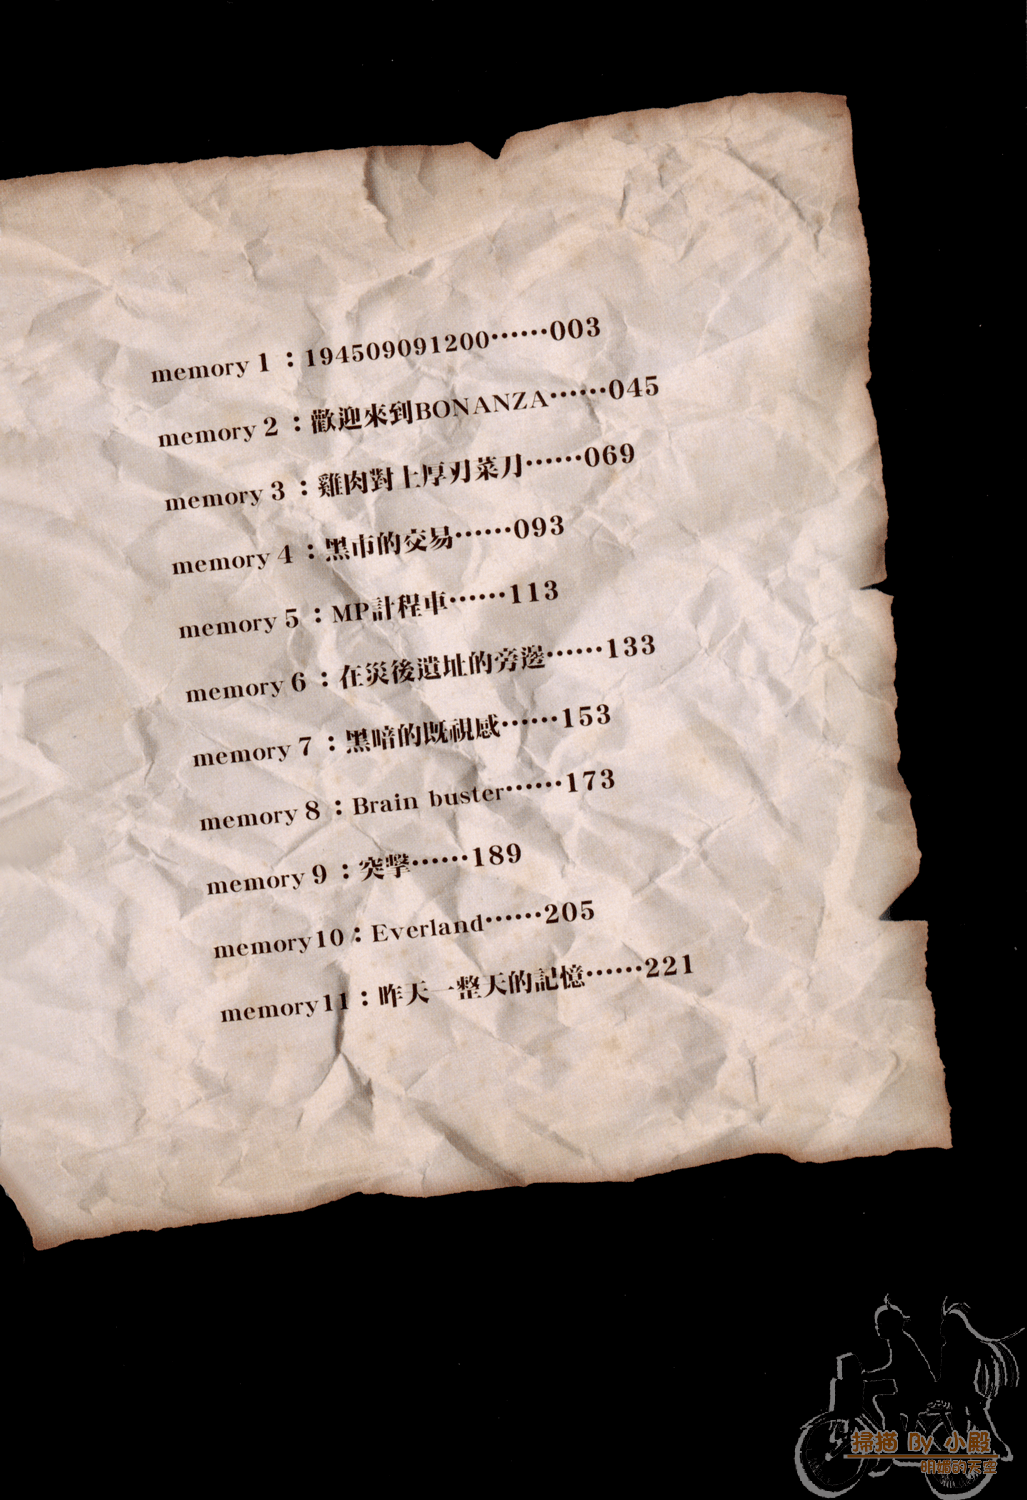 memory 1：194509091200……003
memory 2：歡迎來到BONANZA……045
memory 3：雞肉對上厚刃菜刀……069
memory 4：黑市的交易……093
memory 5：MP計程車……113
memory 6：在災後遺址的旁邊……133
memory 7：黑暗的既視感……153
memory 8：Brain buster……173
memory 9：突擊……189
memory10：Everland……205
memory11：昨天一整天的記憶……221
掃描 By 小殿
的天空